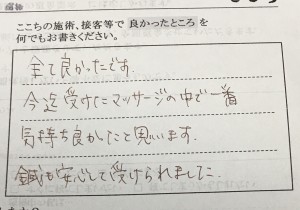 ここちの施術、接客等で 良かったところ を
何でもお書きください。
全て良かったです。
今迄受けたマッサージの中で一番
気持ち良かったと思います。
鍼も安心して受けられました。